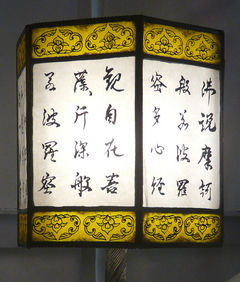 佛說摩訶
般若波羅
蜜多心經
觀自在菩
薩行深般
若波羅蜜